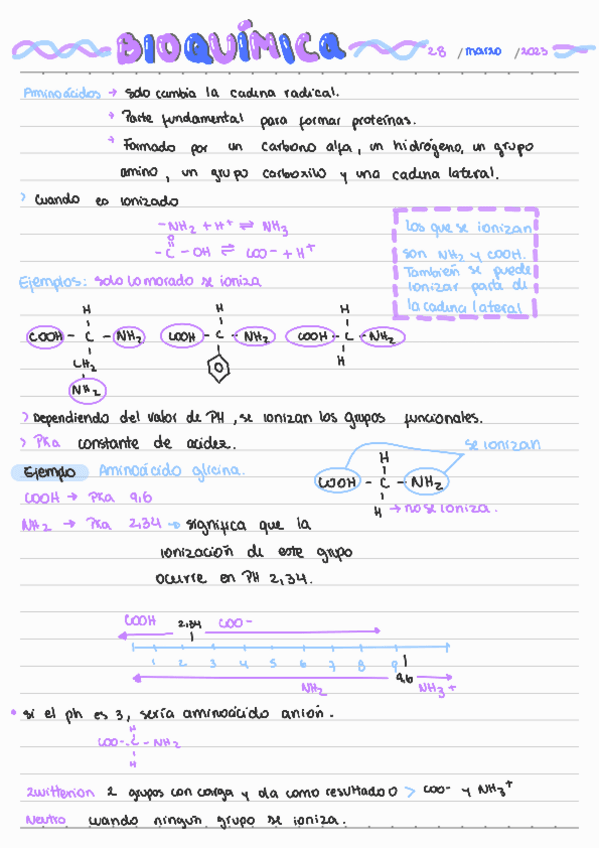 BIOQUÍMICA
28 / marzo / 2023
Aminoácidos → solo cambia la cadena radical.
→ Parte fundamental para formar proteínas.
→ Formado por un carbono alfa, un hidrógeno, un grupo
amino, un grupo carboxilo y una cadena lateral.
> Cuando es ionizado
-NH2 + H+ ⇌ NH3
O
-C - OH ⇌ COO- + H+
Los que se ionizan
son NH2 y COOH.
También se puede
ionizar parte de
la cadena lateral
Ejemplos: solo lo morado se ioniza
H H H
COOH - C - NH2 COOH - C - NH2 COOH - C - NH2
CH2 H
NH2
> Dependiendo del valor de PH, se ionizan los grupos funcionales.
> PKa constante de acidez.
se ionizan
Ejemplo Aminoácido glicina.
H
COOH - C - NH2
H → no se ioniza.
COOH → PKa 9,6
NH2 → PKa 2,34 → significa que la
ionización de este grupo
ocurre en PH 2,34.
COOH 2,34 COO-
1 2 3 4 5 6 7 8 9
9,6
NH2 NH3+
• si el ph es 3, sería aminoácido anión.
H
COO- - C - NH2
H
Zwitterion 2 grupos con carga y da como resultado 0 > COO- y NH3+
Neutro cuando ningún grupo se ioniza.